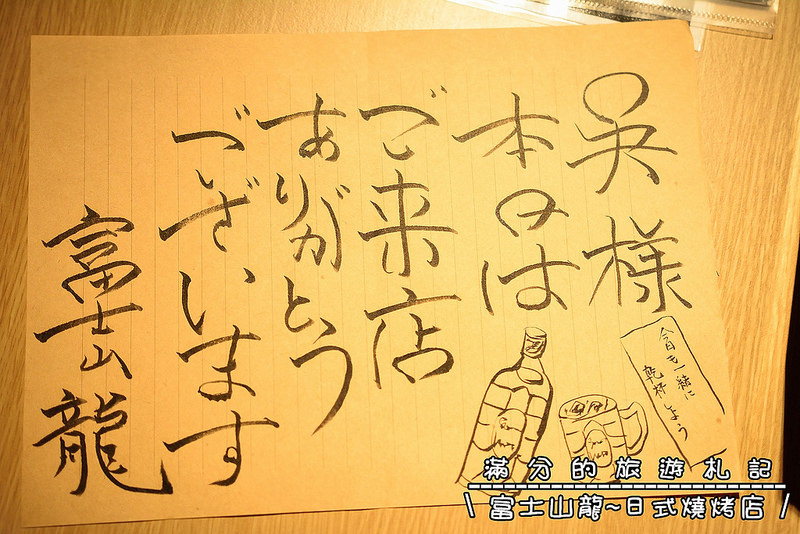 呉様
本日は
ご来店
ありがとう
ございます
富士山龍
今日も一緒に
乾杯しよう
滿分的旅遊札記
\富士山龍~日式燒烤店/